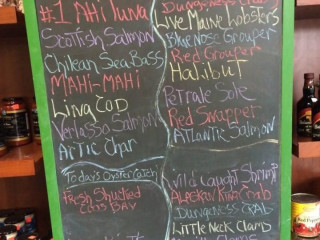 #1 Ahi Tuna
Scottish Salmon
Chilean Sea Bass
MAHI-MAHI
Ling COD
Verlasso Salmon
Artic Char
Dungeness Crab
Live Maine Lobsters
Blue Nose Grouper
Red Grouper
Halibut
Petrale Sole
Red Snapper
Atlantic Salmon
Today's Oyster Catch
Fresh Shucked
Coos Bay
Wild Caught Shrimp
Alaskan King Crab
Dungeness CRAB
Little Neck Clams